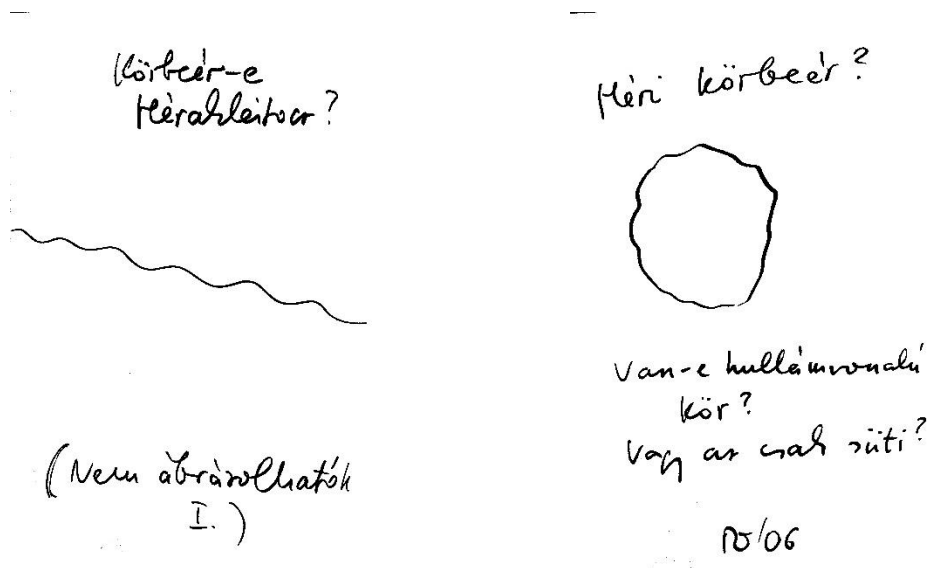 Körbeér-e
Hérakleitosz?
(Nem ábrázolhatók
I.)
Héri körbeér?
Van-e hullámvonalú
kör?
Vagy az csak süti?
/06